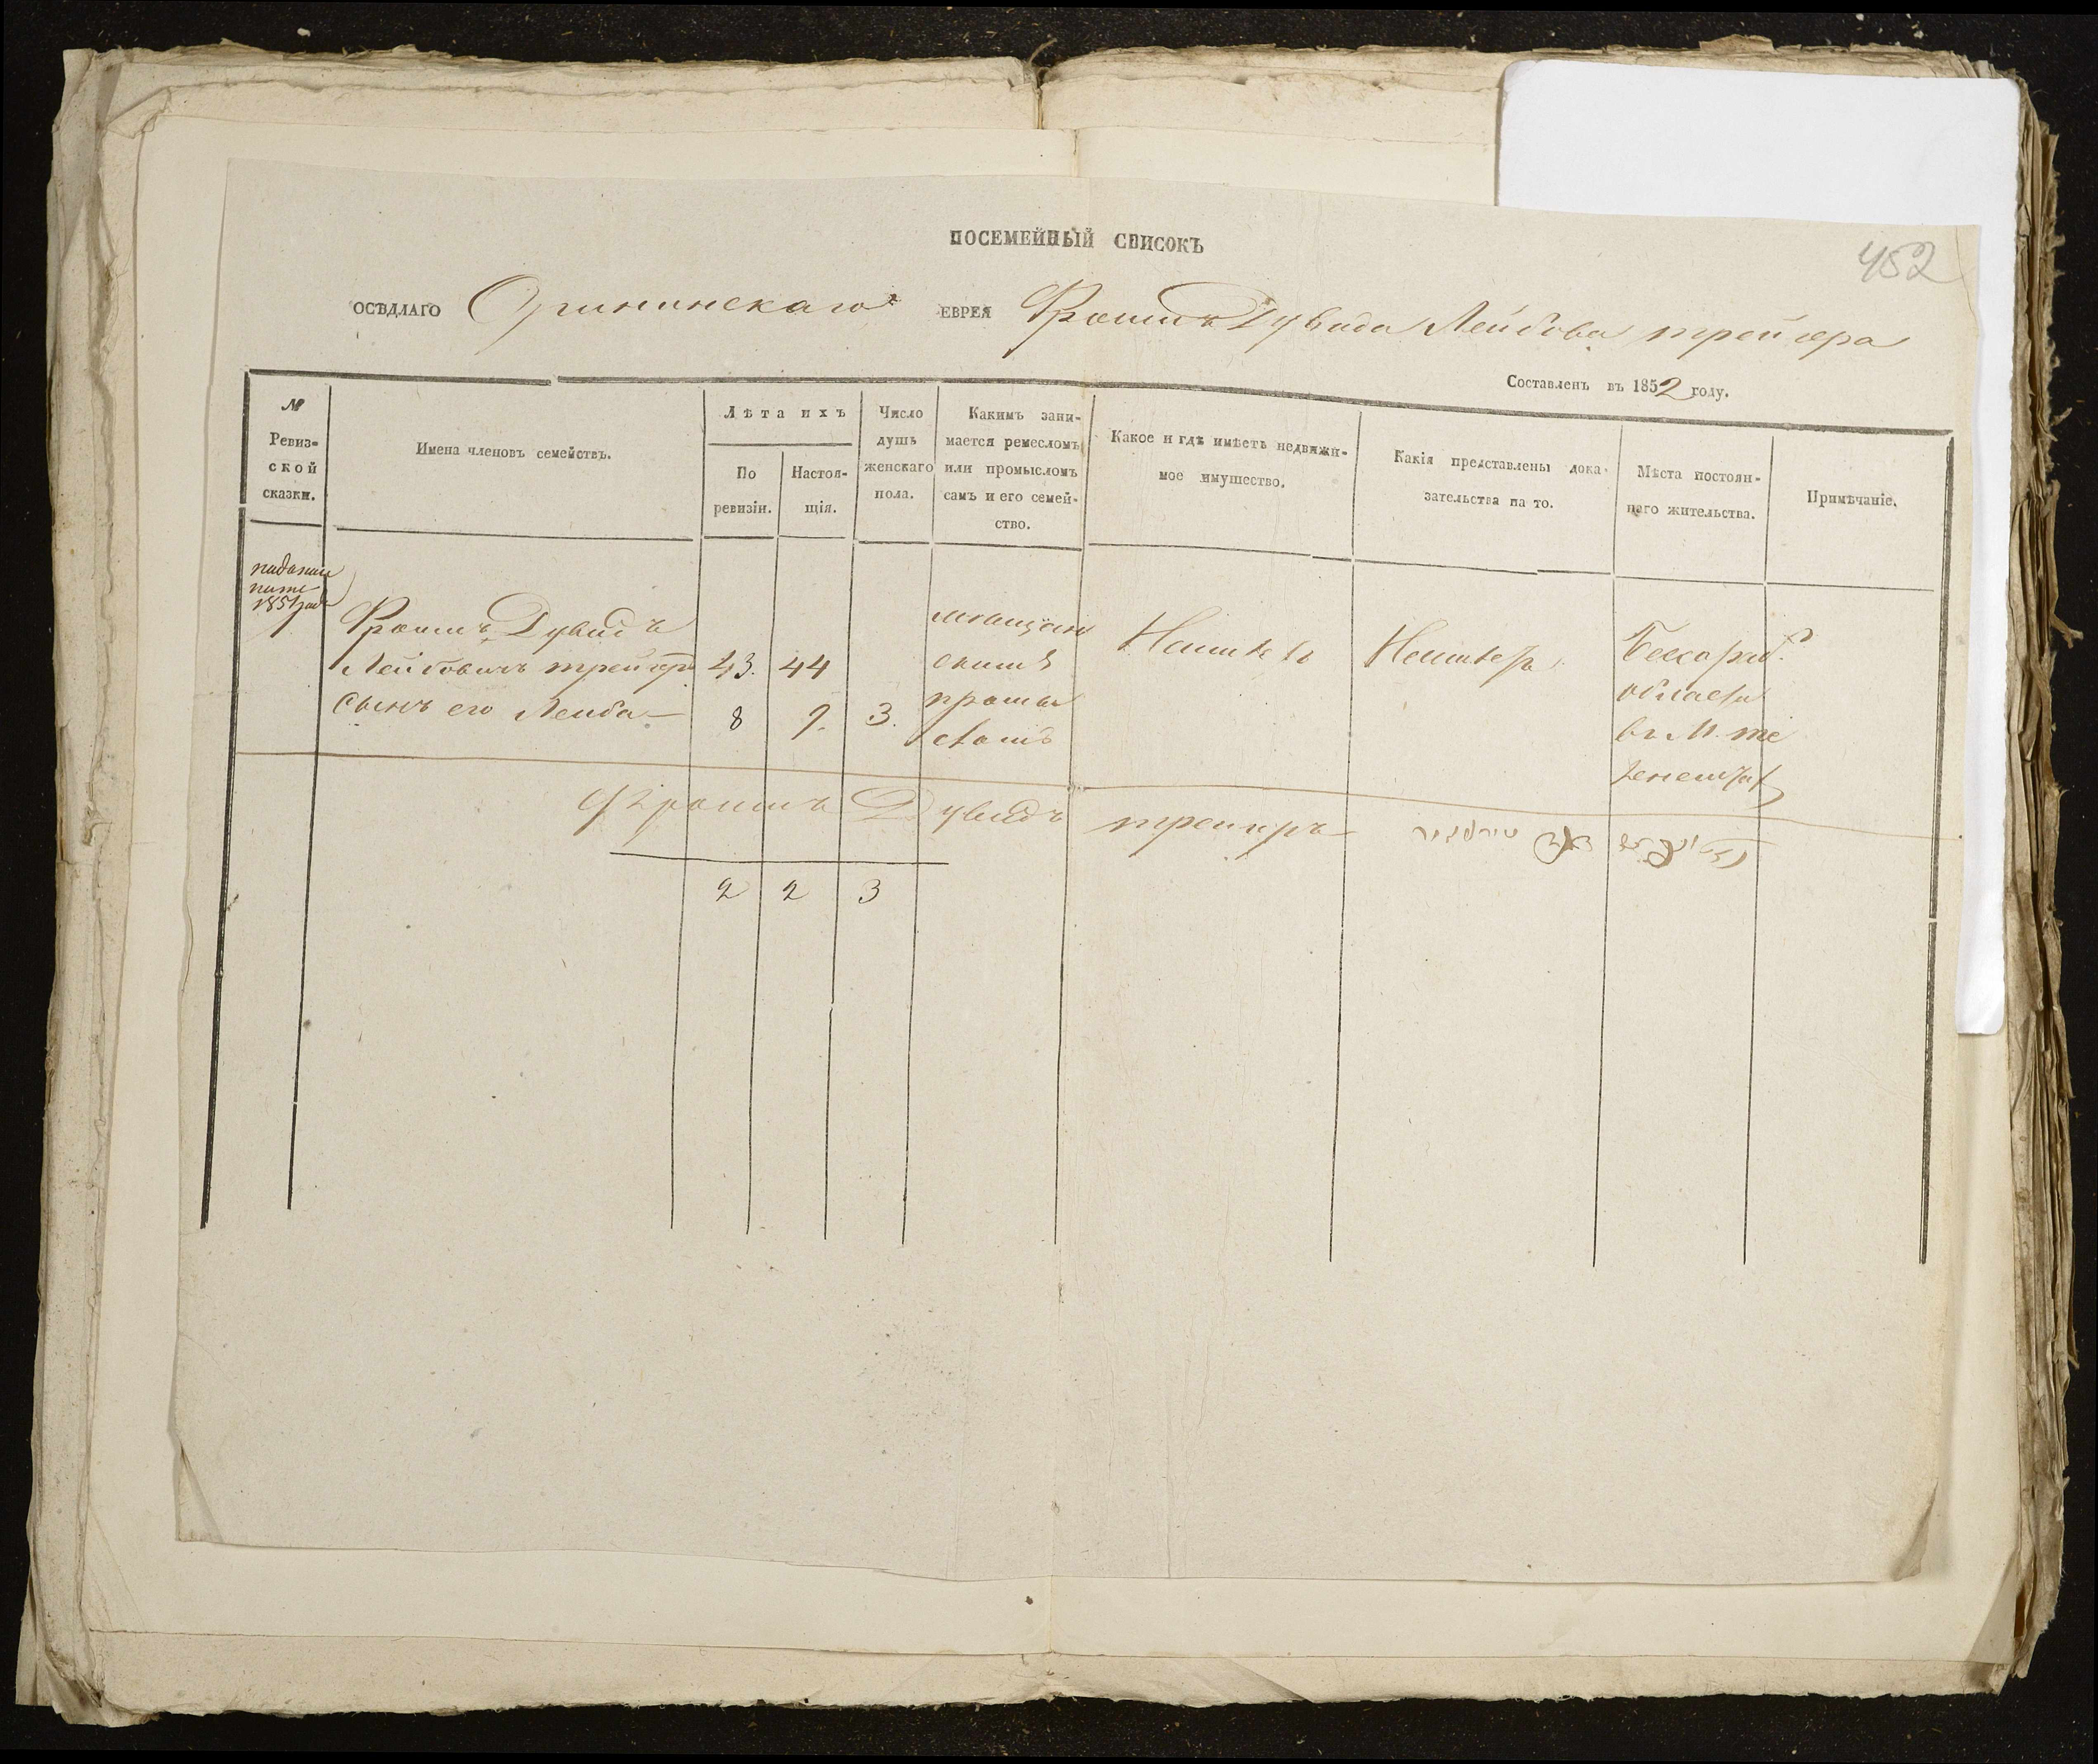 ПОСЕМЕЙНЫЙ СПИСОКЪ
452
ОСѢДЛАГО Орининскаго ЕВРЕЯ Фроимъ Дувида Лейбова трейгера
Составленъ въ 1852 году.
№ Ревиз-
ской
сказки.
Имена членовъ семействъ.
Лѣта ихъ
По
ревизіи.
Настоя-
щія.
Число
душъ
женскаго
пола.
Какимъ зани-
мается ремесломъ
или промысломъ
самъ и его семей-
ство.
Какое и гдѣ имѣетъ недвижи-
мое имущество.
Какія представлены дока-
зательства на то.
Мѣста постоян-
наго жительства.
Примѣчаніе.
1851
Фроимъ Дувидъ
Лейбовичъ трейгеръ 43. 44
сынъ его Лейба 8 9. 3.
мещан
скимъ
промы
сломъ
Неимѣетъ
Неимѣетъ
Бессараб.
области
въ М. те
ленештах
Фроимъ Дувидъ трейгеръ
2 2 3